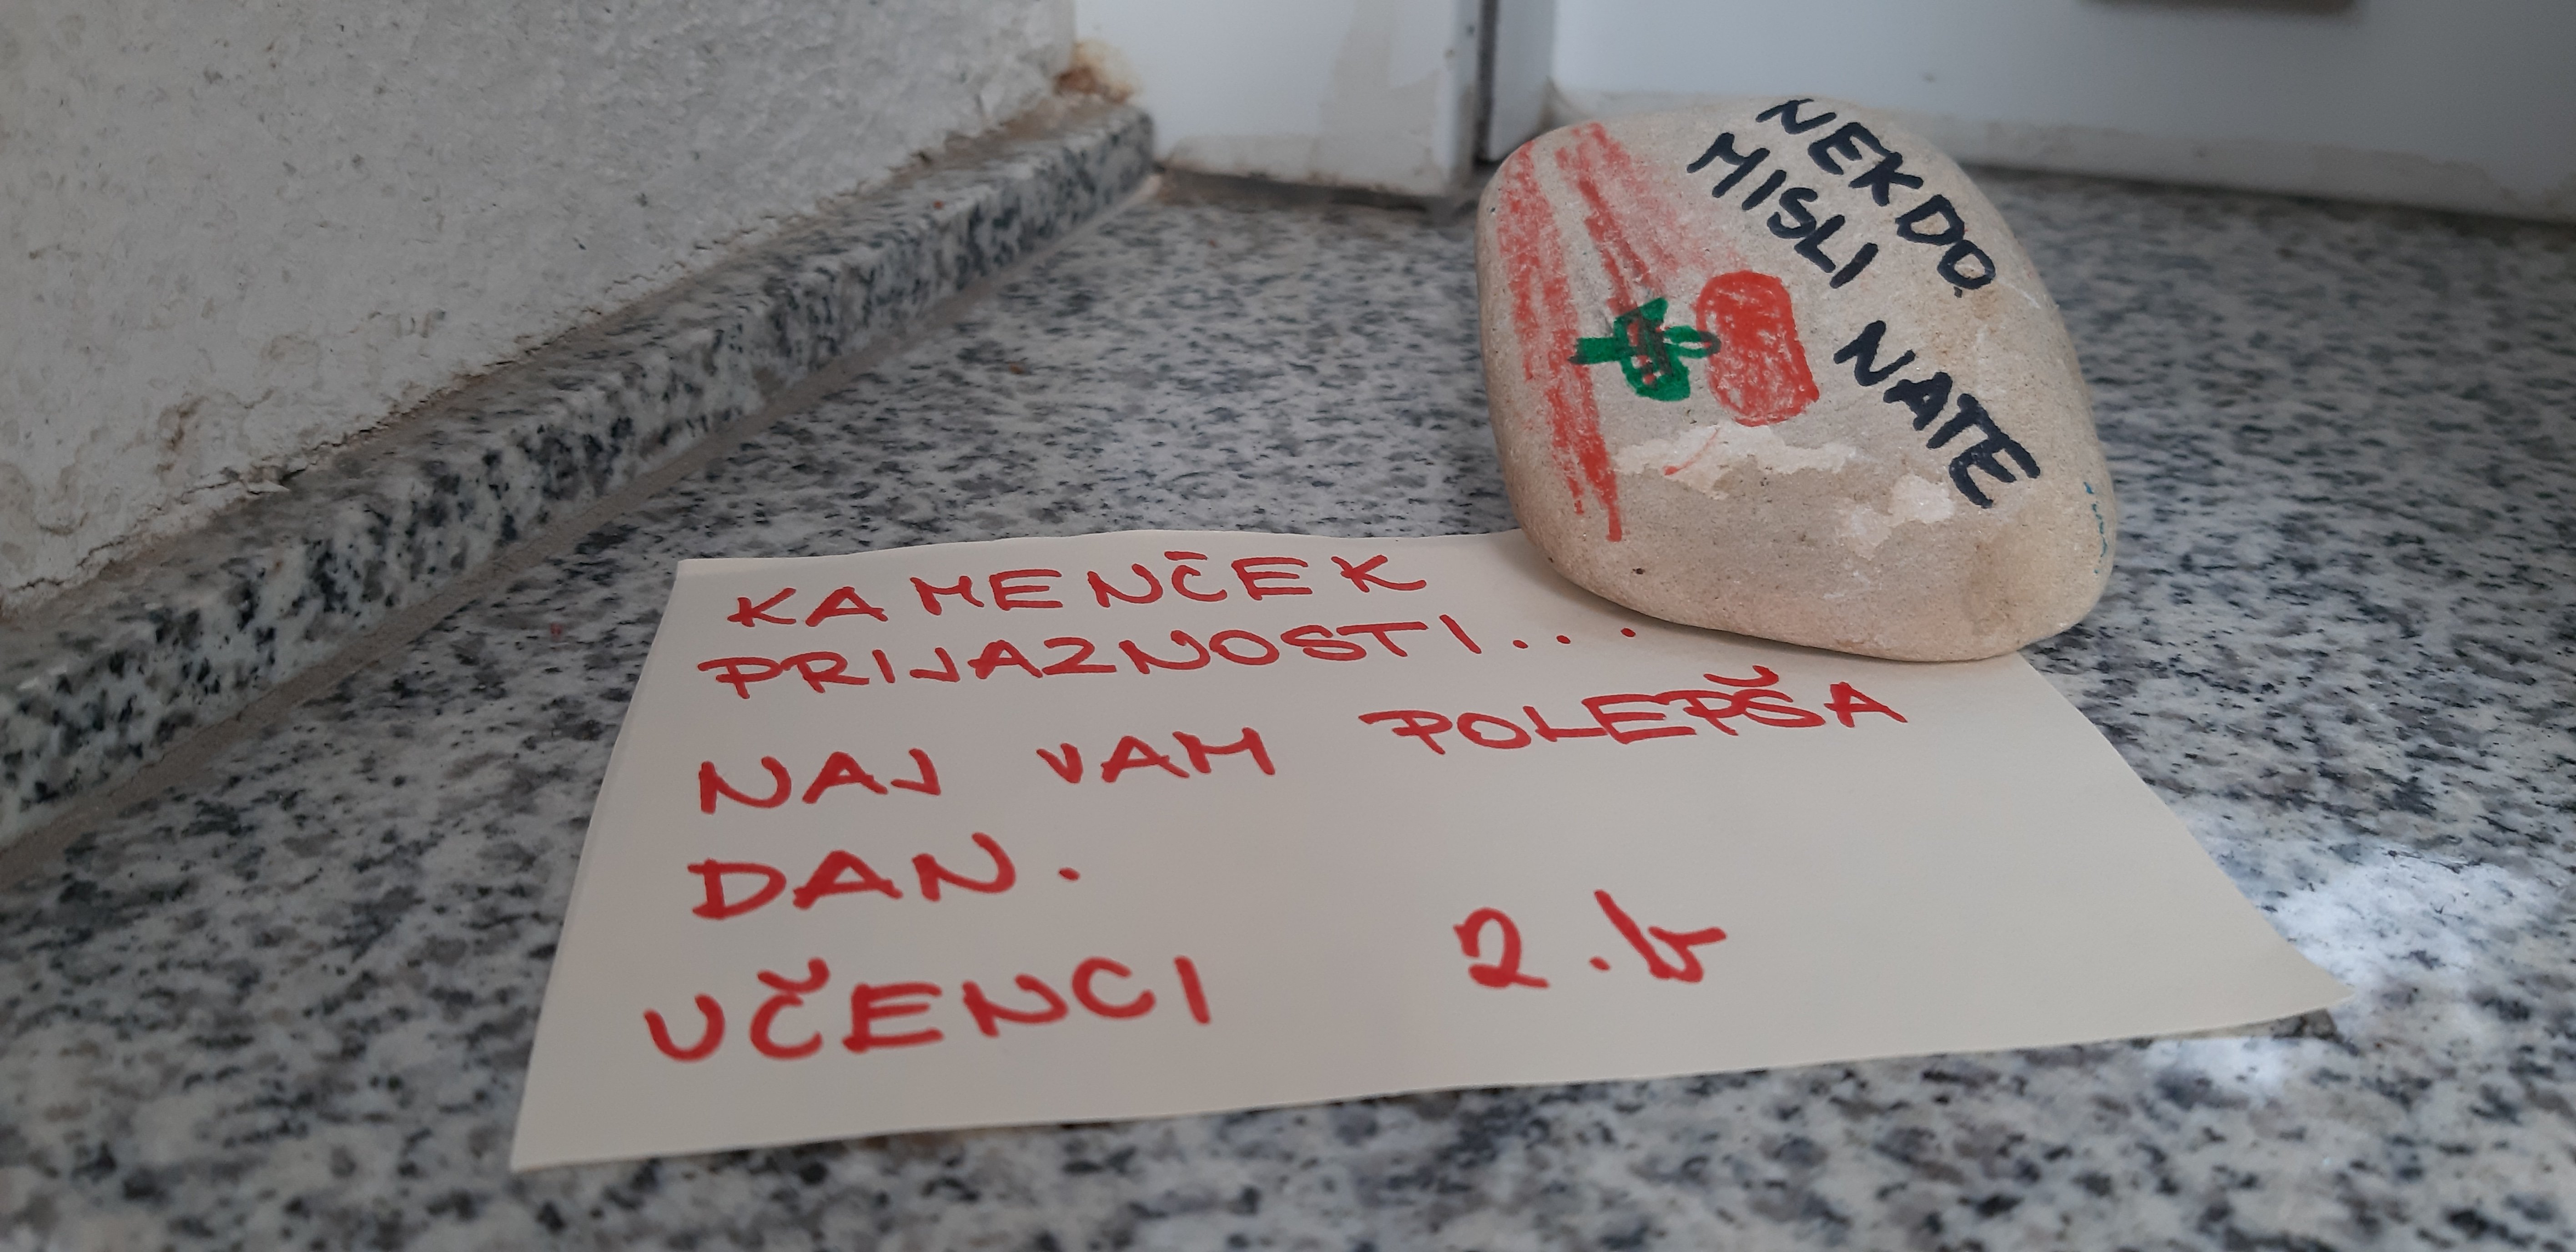 NEKDO
MISLI NATE
KAMENČEK
PRIJAZNOSTI...
NAJ VAM POLEPŠA
DAN.
UČENCI 2.b